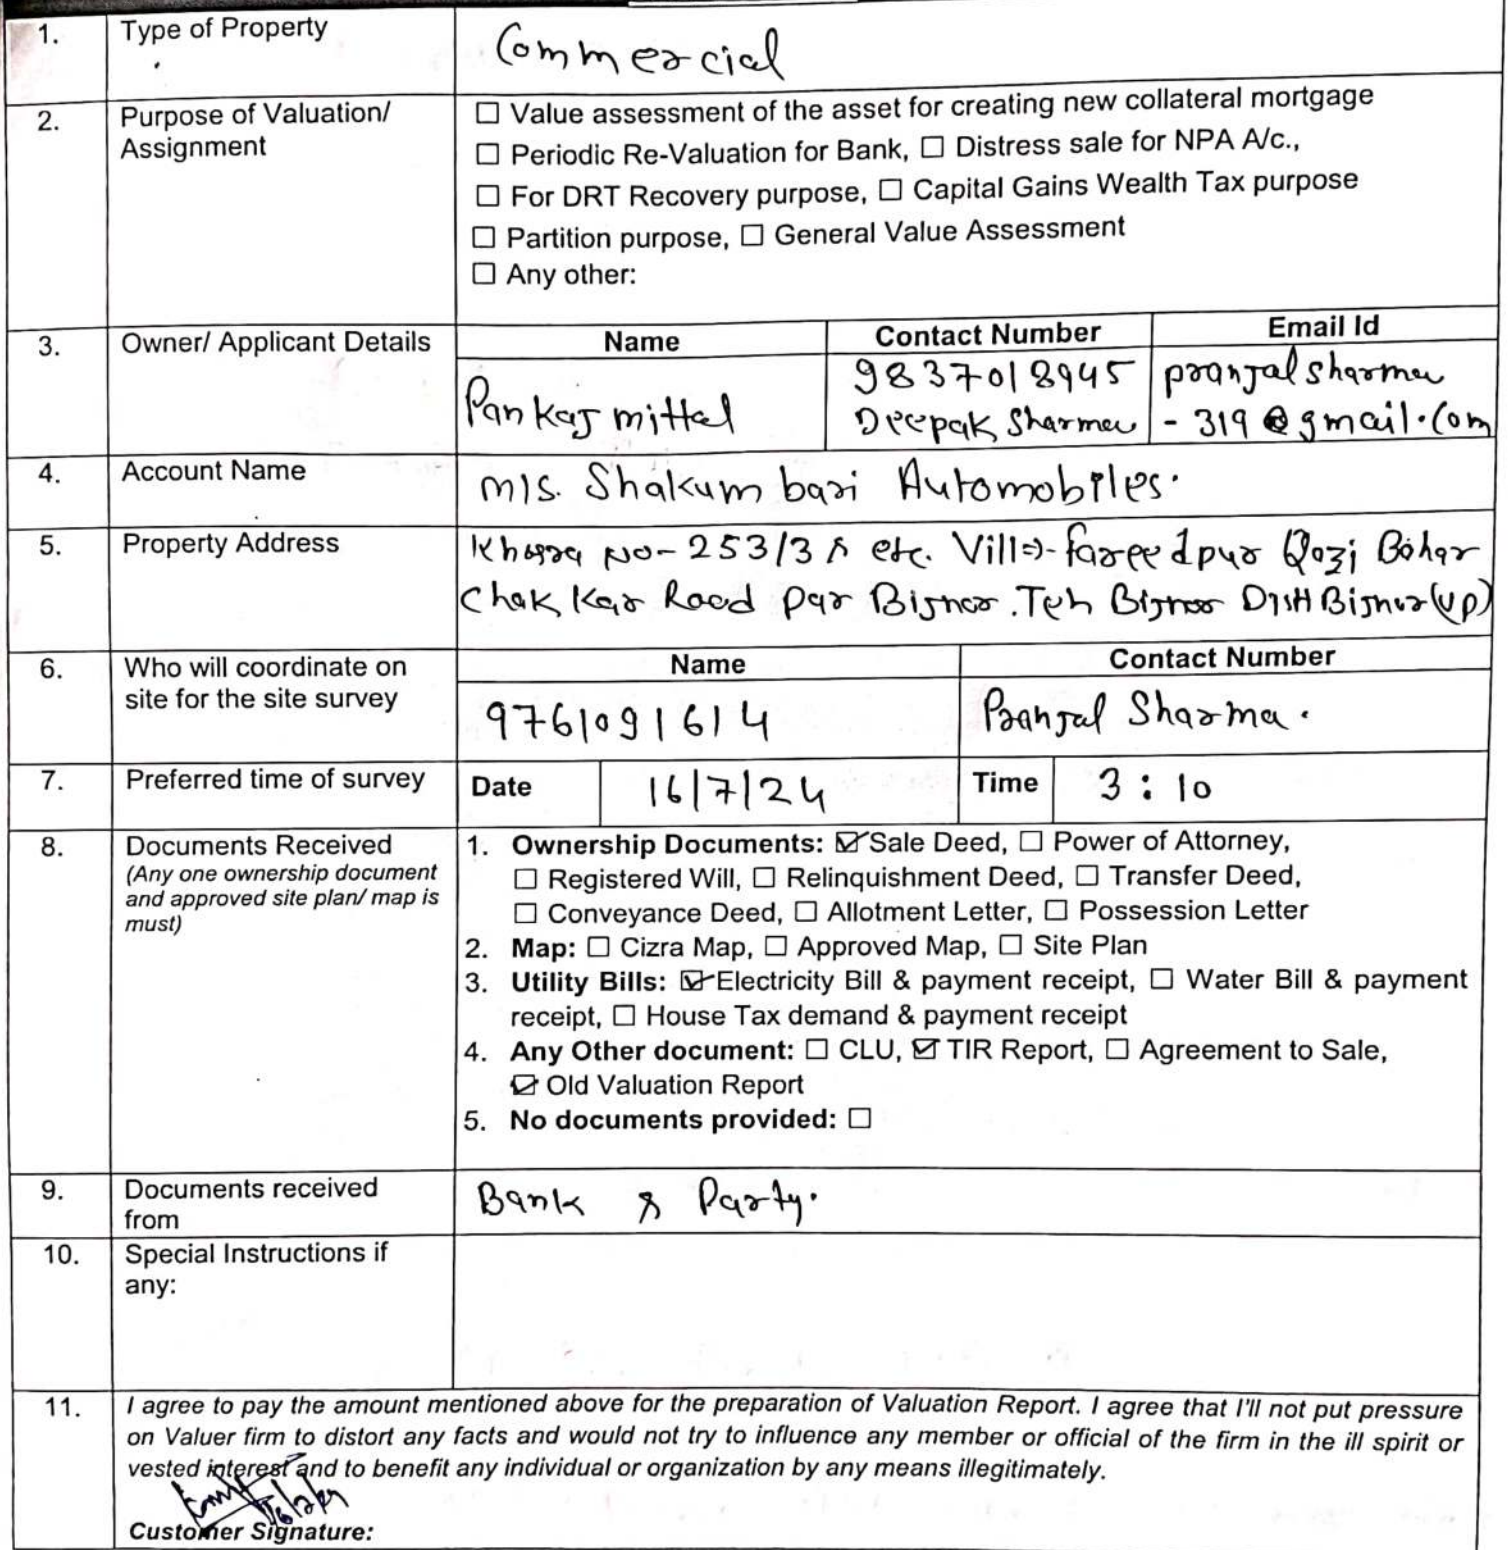 1. Type of Property Commercial
2. Purpose of Valuation/ Assignment
☐ Value assessment of the asset for creating new collateral mortgage
☐ Periodic Re-Valuation for Bank, ☐ Distress sale for NPA A/c.,
☐ For DRT Recovery purpose, ☐ Capital Gains Wealth Tax purpose
☐ Partition purpose, ☐ General Value Assessment
☐ Any other:
3. Owner/ Applicant Details
Name Contact Number Email Id
Pankaj mittal
9837018945
Deepak Sharma
pranjalsharma
- 319@gmail.com
4. Account Name M/S. Shakumbari Automobiles.
5. Property Address
Khasra No- 253/3 & etc. Vill=)- fareedpur Qazi Bohar
Chak Kar Road par Bijnor. Teh Bijnor Distt Bijnor (UP)
6. Who will coordinate on
site for the site survey
Name Contact Number
9761091614 Pranjal Sharma.
7. Preferred time of survey Date 16/7/24 Time 3:10
8. Documents Received
(Any one ownership document
and approved site plan/ map is
must)
1. Ownership Documents: ☑ Sale Deed, ☐ Power of Attorney,
☐ Registered Will, ☐ Relinquishment Deed, ☐ Transfer Deed,
☐ Conveyance Deed, ☐ Allotment Letter, ☐ Possession Letter
2. Map: ☐ Cizra Map, ☐ Approved Map, ☐ Site Plan
3. Utility Bills: ☑ Electricity Bill & payment receipt, ☐ Water Bill & payment
receipt, ☐ House Tax demand & payment receipt
4. Any Other document: ☐ CLU, ☑ TIR Report, ☐ Agreement to Sale,
☑ Old Valuation Report
5. No documents provided: ☐
9. Documents received
from
Bank & Party.
10. Special Instructions if
any:
11. I agree to pay the amount mentioned above for the preparation of Valuation Report. I agree that I'll not put pressure
on Valuer firm to distort any facts and would not try to influence any member or official of the firm in the ill spirit or
vested interest and to benefit any individual or organization by any means illegitimately.
Customer Signature: